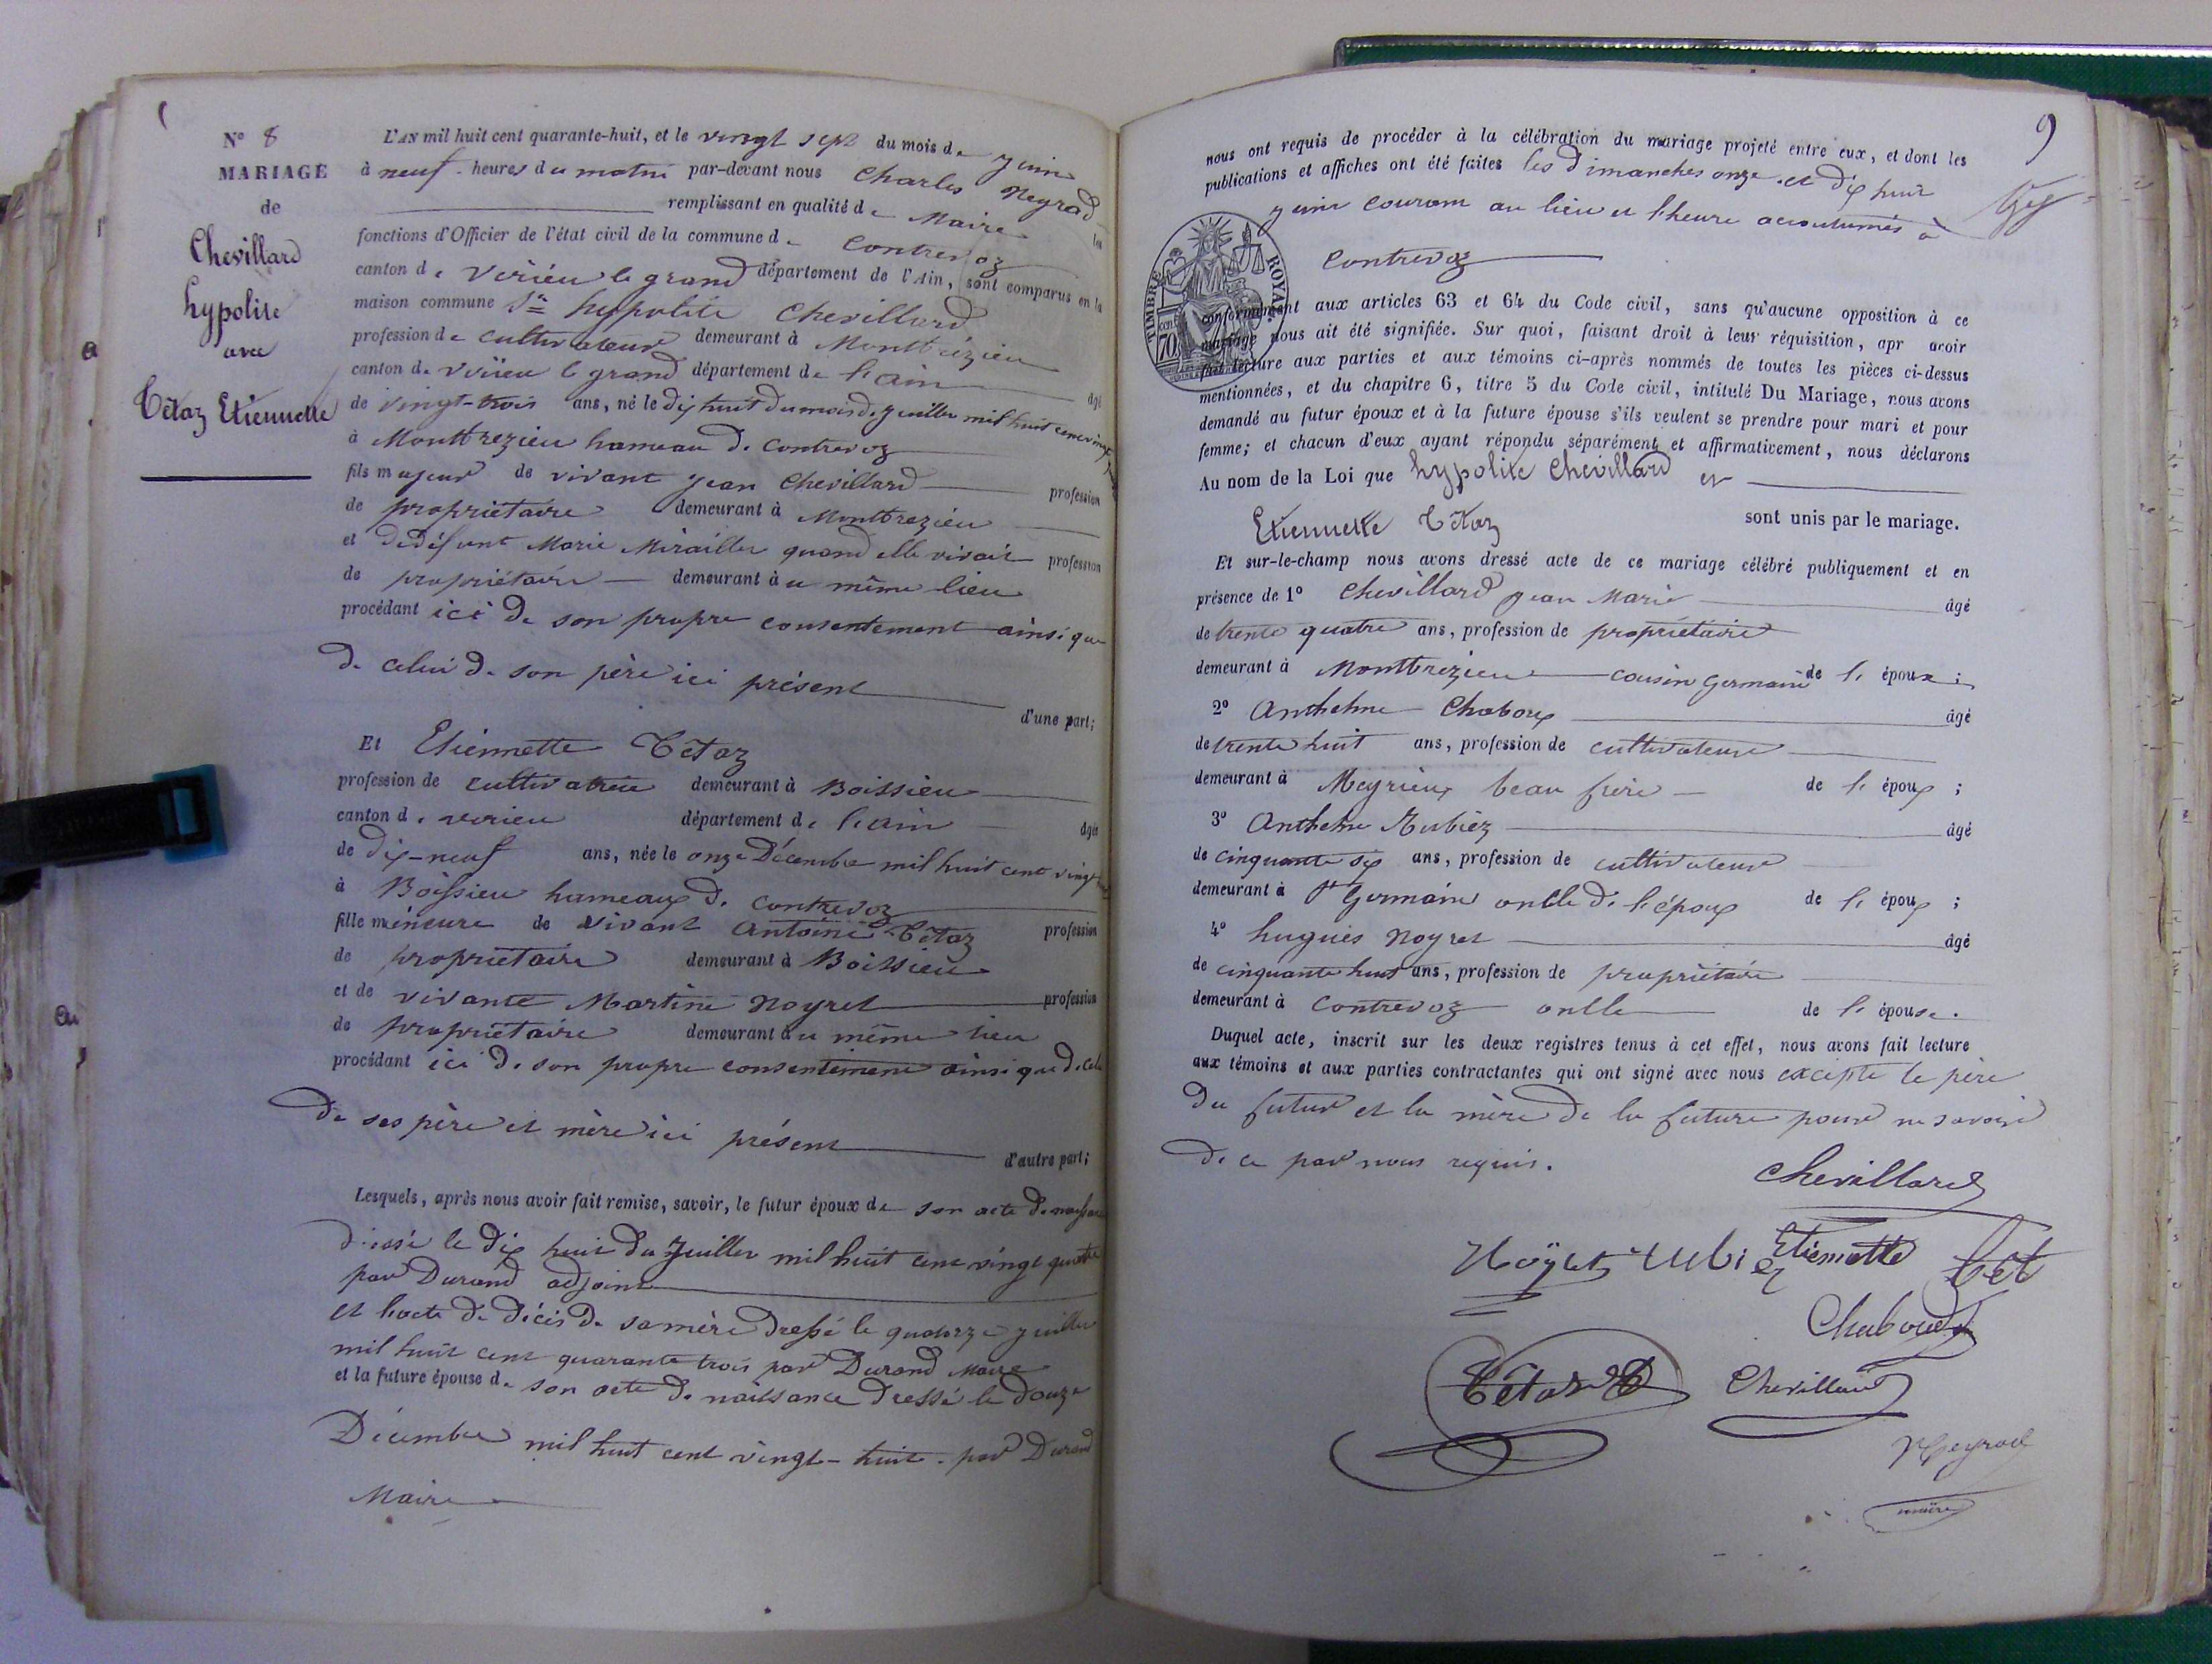 N° 8
MARIAGE
de
Chevillard
hypolite
avec
Tétaz Etiennette
L'AN mil huit cent quarante-huit, et le vingt sept du mois de juin
à neuf heures du matin par-devant nous Charles Neyrod
remplissant en qualité de Maire les
fonctions d'Officier de l'état civil de la commune de Contrevoz
canton de virieu le grand département de l'Ain, sont comparus en la
maison commune Sr hypolite Chevillard
profession de cultivateur demeurant à Montbrézieu
canton de virieu le grand département de l'ain âgé
de vingt-trois ans, né le dix huit du mois de juillet mil huit cent vingt
à Montbrezieu hameau de Contrevoz
fils majeur de vivant jean Chevillard profession
de propriétaire demeurant à Montbrezieu
et de défunt Marie Mirailler quand elle vivait profession
de propriétaire demeurant au même lieu
procédant ici de son propre consentement ainsi que
de celui de son père ici présent
d'une part;
Et Etiennette Tétaz
profession de cultivatrice demeurant à Boissieu
canton de virieu département de l'ain âgée
de dix-neuf ans, née le onze Décembre mil huit cent vingt
à Boissieu hameaux de Contrevoz
fille mineure de vivant Antoine Tétaz profession
de propriétaire demeurant à Boissieu
et de vivante Martine Noyret profession
de propriétaire demeurant au même lieu
procédant ici de son propre consentement ainsi que de celui
de ses père et mère ici présent
d'autre part;
Lesquels, après nous avoir fait remise, savoir, le futur époux de son acte de naissance
dressé le dix huit du Juillet mil huit cent vingt quatre
par Durand adjoint
et l'acte de décès de sa mère dressé le quatorze juillet
mil huit cent quarante trois par Durand Maire
et la future épouse de son acte de naissance dressé le douze
Décembre mil huit cent vingt-huit par Durand
Maire
9
nous ont requis de procéder à la célébration du mariage projeté entre eux, et dont les
publications et affiches ont été faites les dimanches onze et dix huit
juin courant au lieu et l'heure acoutumés à
Contrevoz
TIMBRE ROYAL
70
conformément aux articles 63 et 64 du Code civil, sans qu'aucune opposition à ce
mariage nous ait été signifiée. Sur quoi, faisant droit à leur réquisition, apr avoir
fait lecture aux parties et aux témoins ci-après nommés de toutes les pièces ci-dessus
mentionnées, et du chapitre 6, titre 5 du Code civil, intitulé Du Mariage, nous avons
demandé au futur époux et à la future épouse s'ils veulent se prendre pour mari et pour
femme; et chacun d'eux ayant répondu séparément et affirmativement, nous déclarons
Au nom de la Loi que hypolite Chevillard et
Etiennette Tétaz sont unis par le mariage.
Et sur-le-champ nous avons dressé acte de ce mariage célébré publiquement et en
présence de 1° Chevillard jean Marie âgé
de trente quatre ans, profession de propriétaire
demeurant à Montbrezieu cousin germain de l'époux;
2° Anthelme Chaboux âgé
de trente huit ans, profession de cultivateur
demeurant à Meyrieux beau frère de l'époux;
3° Anthelme âgé
de cinquante six ans, profession de cultivateur
demeurant à St Germain onlle de l'époux de l'époux;
4° hugues Noyret âgé
de cinquante huit ans, profession de propriétaire
demeurant à Contrevoz onlle de l'épouse.
Duquel acte, inscrit sur les deux registres tenus à cet effet, nous avons fait lecture
aux témoins et aux parties contractantes qui ont signé avec nous excepté le père
du futur et la mère de la future pour ne savoir
de ce par nous requis.
Chevillard
Noÿret Etiennette Tét
Chaboud
Tétaz Chevillard
Neyrod
maire